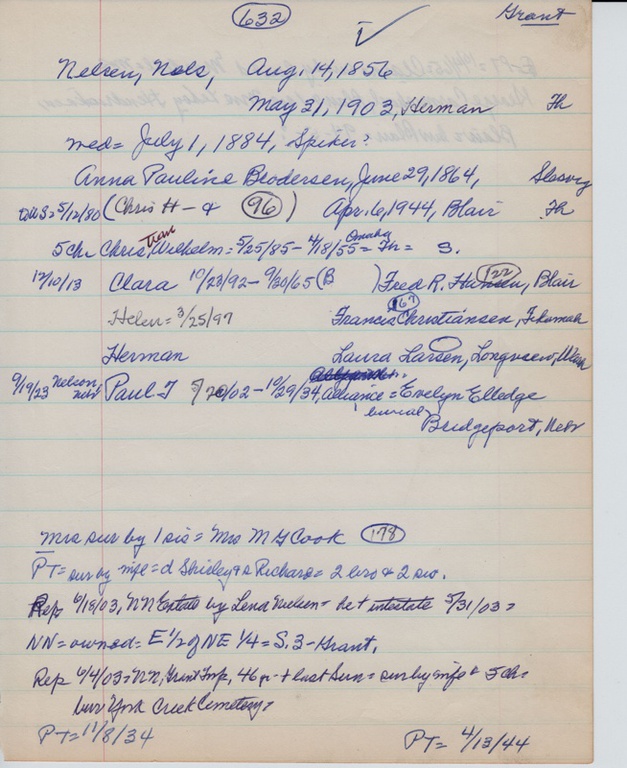 632
Grant
Nelsen, Nels, Aug. 14, 1856
May 31, 1903, Herman Th
med= July 1, 1884, Spiker:
Anna Pauline Beodersen, June 29, 1864, Slesvig
to U.S.=5/12/80 (Chris H - & 96) Apr. 6, 1944, Blair Th
5 ch Chris, Wilhelm= 5/25/85 - 4/18/55= Omaha Th= S.
12/10/13 Clara 10/23/92 - 9/20/65 (B ) Fred R. Hansen, 122 Blair
Helen= 3/25/97 Francis Christiansen, 167 Tekamah
Herman Laura Larsen, Longview, Wash
9/19/23 Nelson, Paul T 5/20/02 - 10/29/34, Alliance = Evelyn Elledge
burial Bridgeport, Neb
Mrs sur by 1 sis= Mrs M G Cook 178
PT= sur by mfe= d Shirley & s Richard= 2 bro & 2 sis.
Rep 6/18/03, NN Estate by Lena Nelsen= het intestate 5/31/03=
NN= owned= E 1/2 of NE 1/4= S. 3- Grant.
Rep 6/4/03= NN, Grant Twp, 46 yr - + last Sun= sur by mfe & 5 ch=
bur York Creek Cemetery=
PT= 11/8/34 PT= 4/13/44